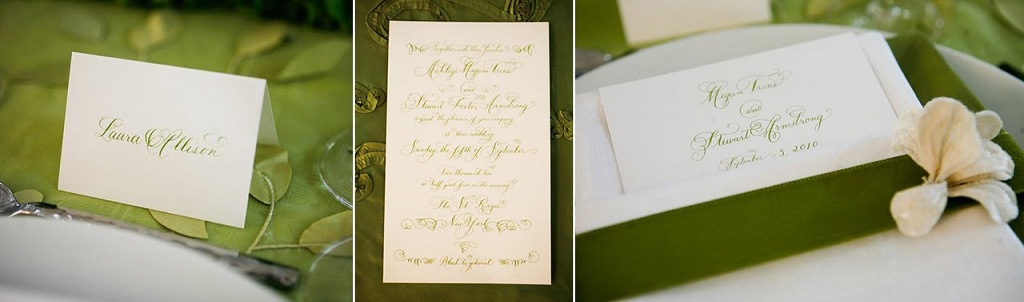 Laura Allison
Together with their families
Megan Irene
and
Stewart Foster Armstrong
request the pleasure of your company
at their wedding
Sunday the fifth of September
two thousand ten
at half past five in the evening
The St. Regis
New York
Black tie optional
Megan Irene
and
Stewart Armstrong
September 5, 2010